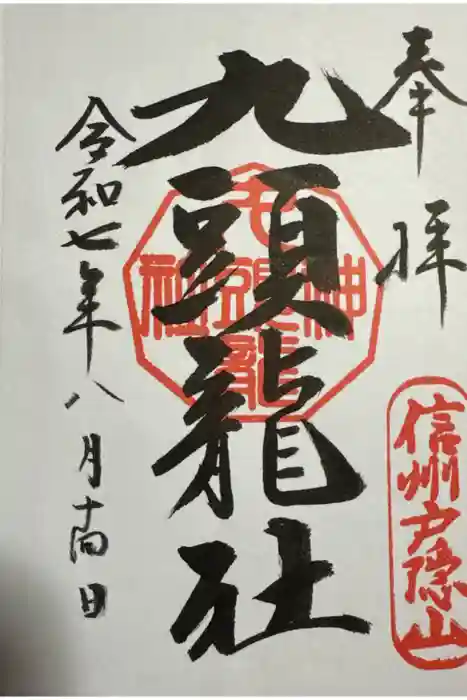 奉拝
信州戸隠山
九頭龍社
令和七年八月十四日